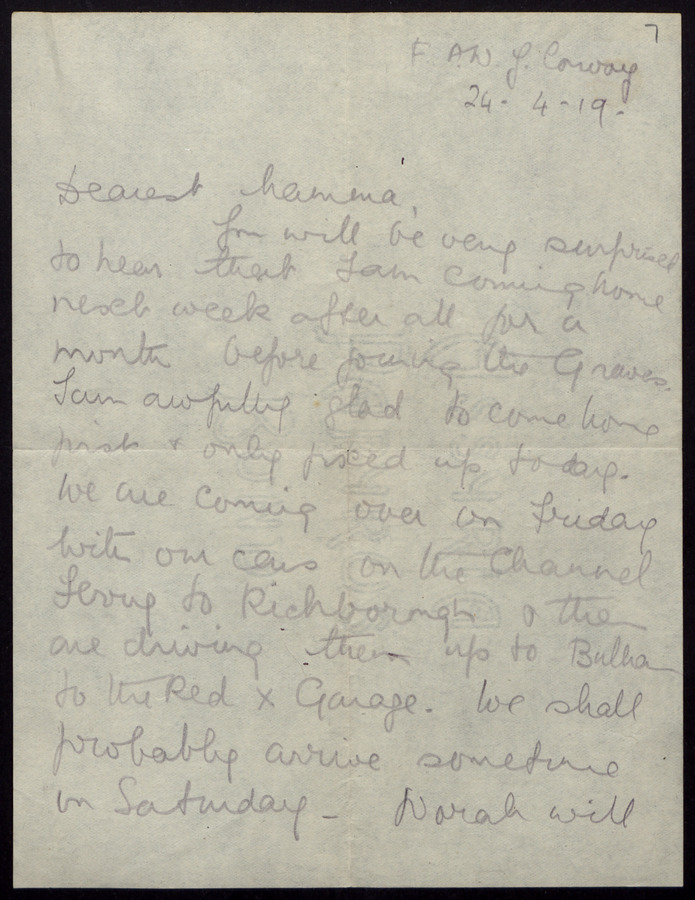 7
F.A.N.Y. Convoy
24 - 4 - 19 -
Dearest Mamma,
You will be very surprised
to hear that I am coming home
next week after all for a
month before joining the Graves.
I am awfully glad to come home
first & only fixed up today.
We are coming over on Friday
with our cars on the Channel
Ferry to Richborough & then
are driving them up to
to the Red X Garage. We shall
probably arrive sometime
on Saturday - Norah will